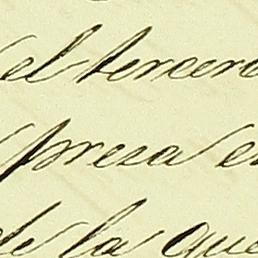 el tercero
presa en
de la que